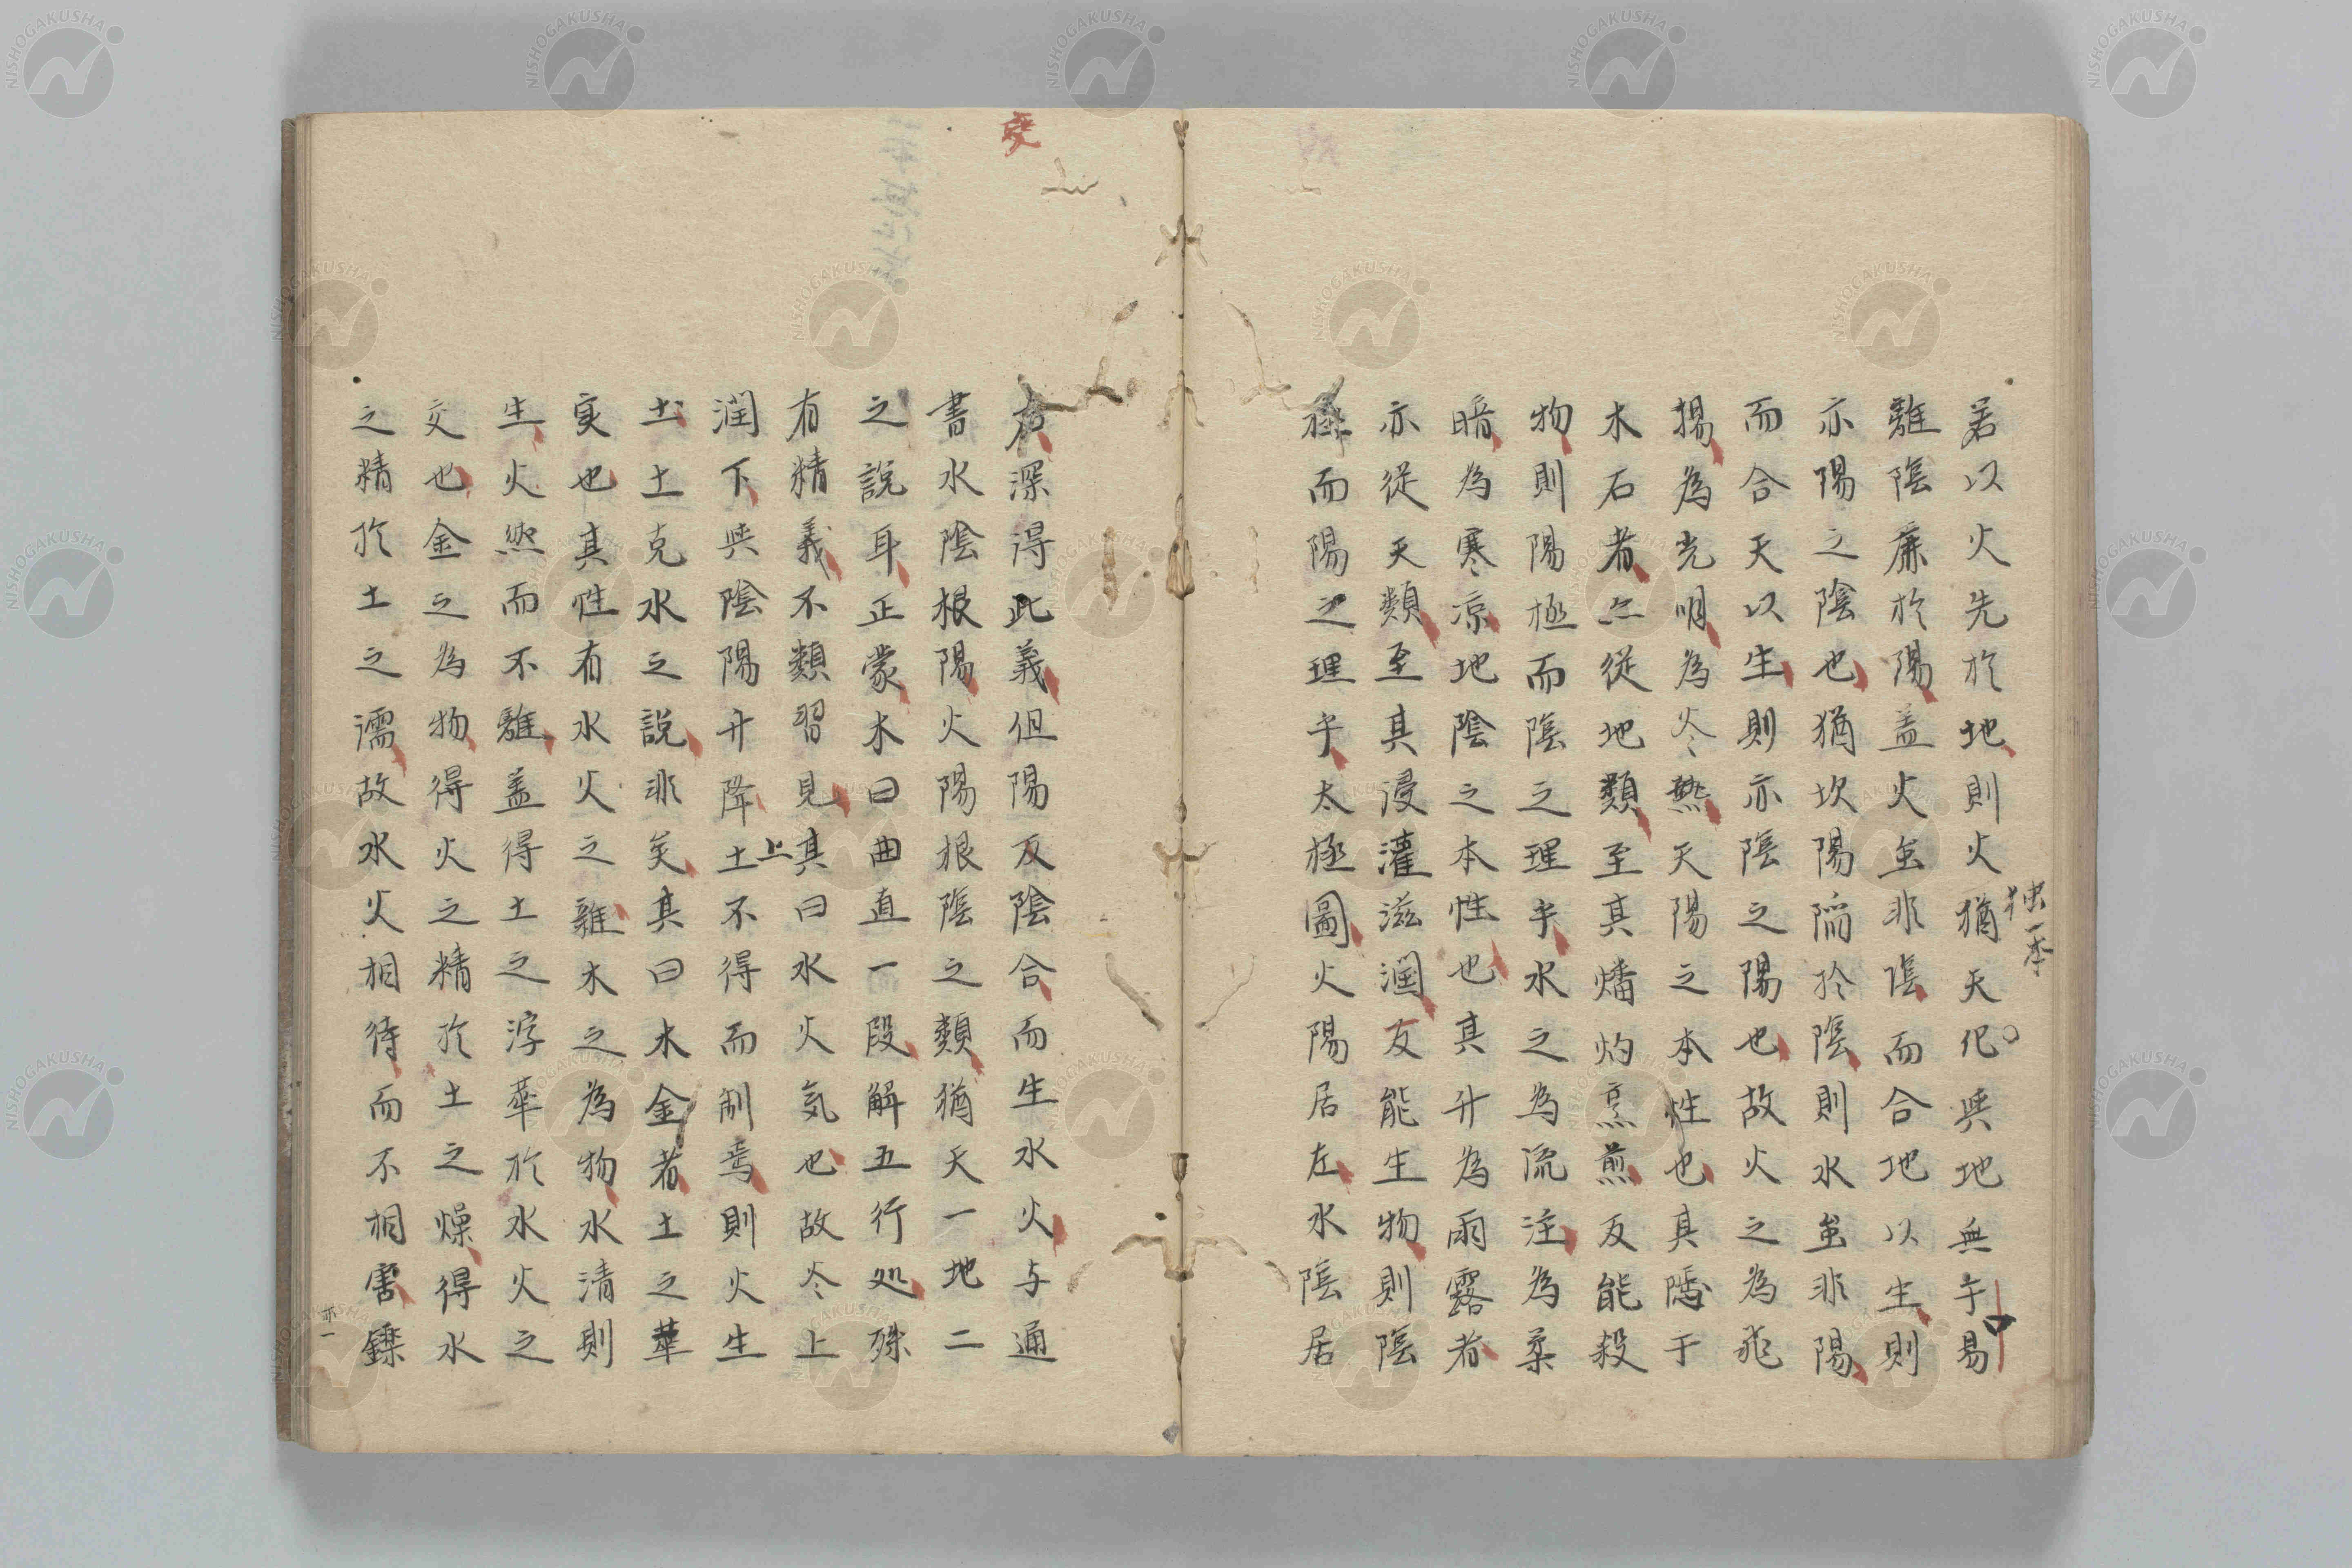 若以火先於地則火猶天化與地無乎易
獨一本
離陰麗於陽盖火虽非陰而合地以生則
亦陽之陰也猶坎陽陷於陰則水虽非陽
而合天以生則亦陰之陽也故火之為飛
揚為光明為炎熱天陽之本性也其隱于
木石者亦從地類至其燔灼烹煎反能殺
物則陽極而陰之理乎水之為流注為柔
暗為寒凉地陰之本性也其升為雨露者
亦從天類至其浸灌滋潤反能生物則陰
極而陽之理乎太極圖火陽居左水陰居
右深得此義但陽反陰合而生水火与通
書水陰根陽火陽根陰之類猶天一地二
之說耳正蒙木曰曲直一段解五行処殊
有精義不類習見其曰水火気也故炎上
潤下與陰陽升降土不得而制焉則火生
上
土土克水之說非矣其曰木金者土之華
実也其性有水火之雜木之為物水清則
生火然而不離盖得土之浮華於水火之
交也金之為物得火之精於土之燥得水
之精於土之濡故水火相待而不相害鑠